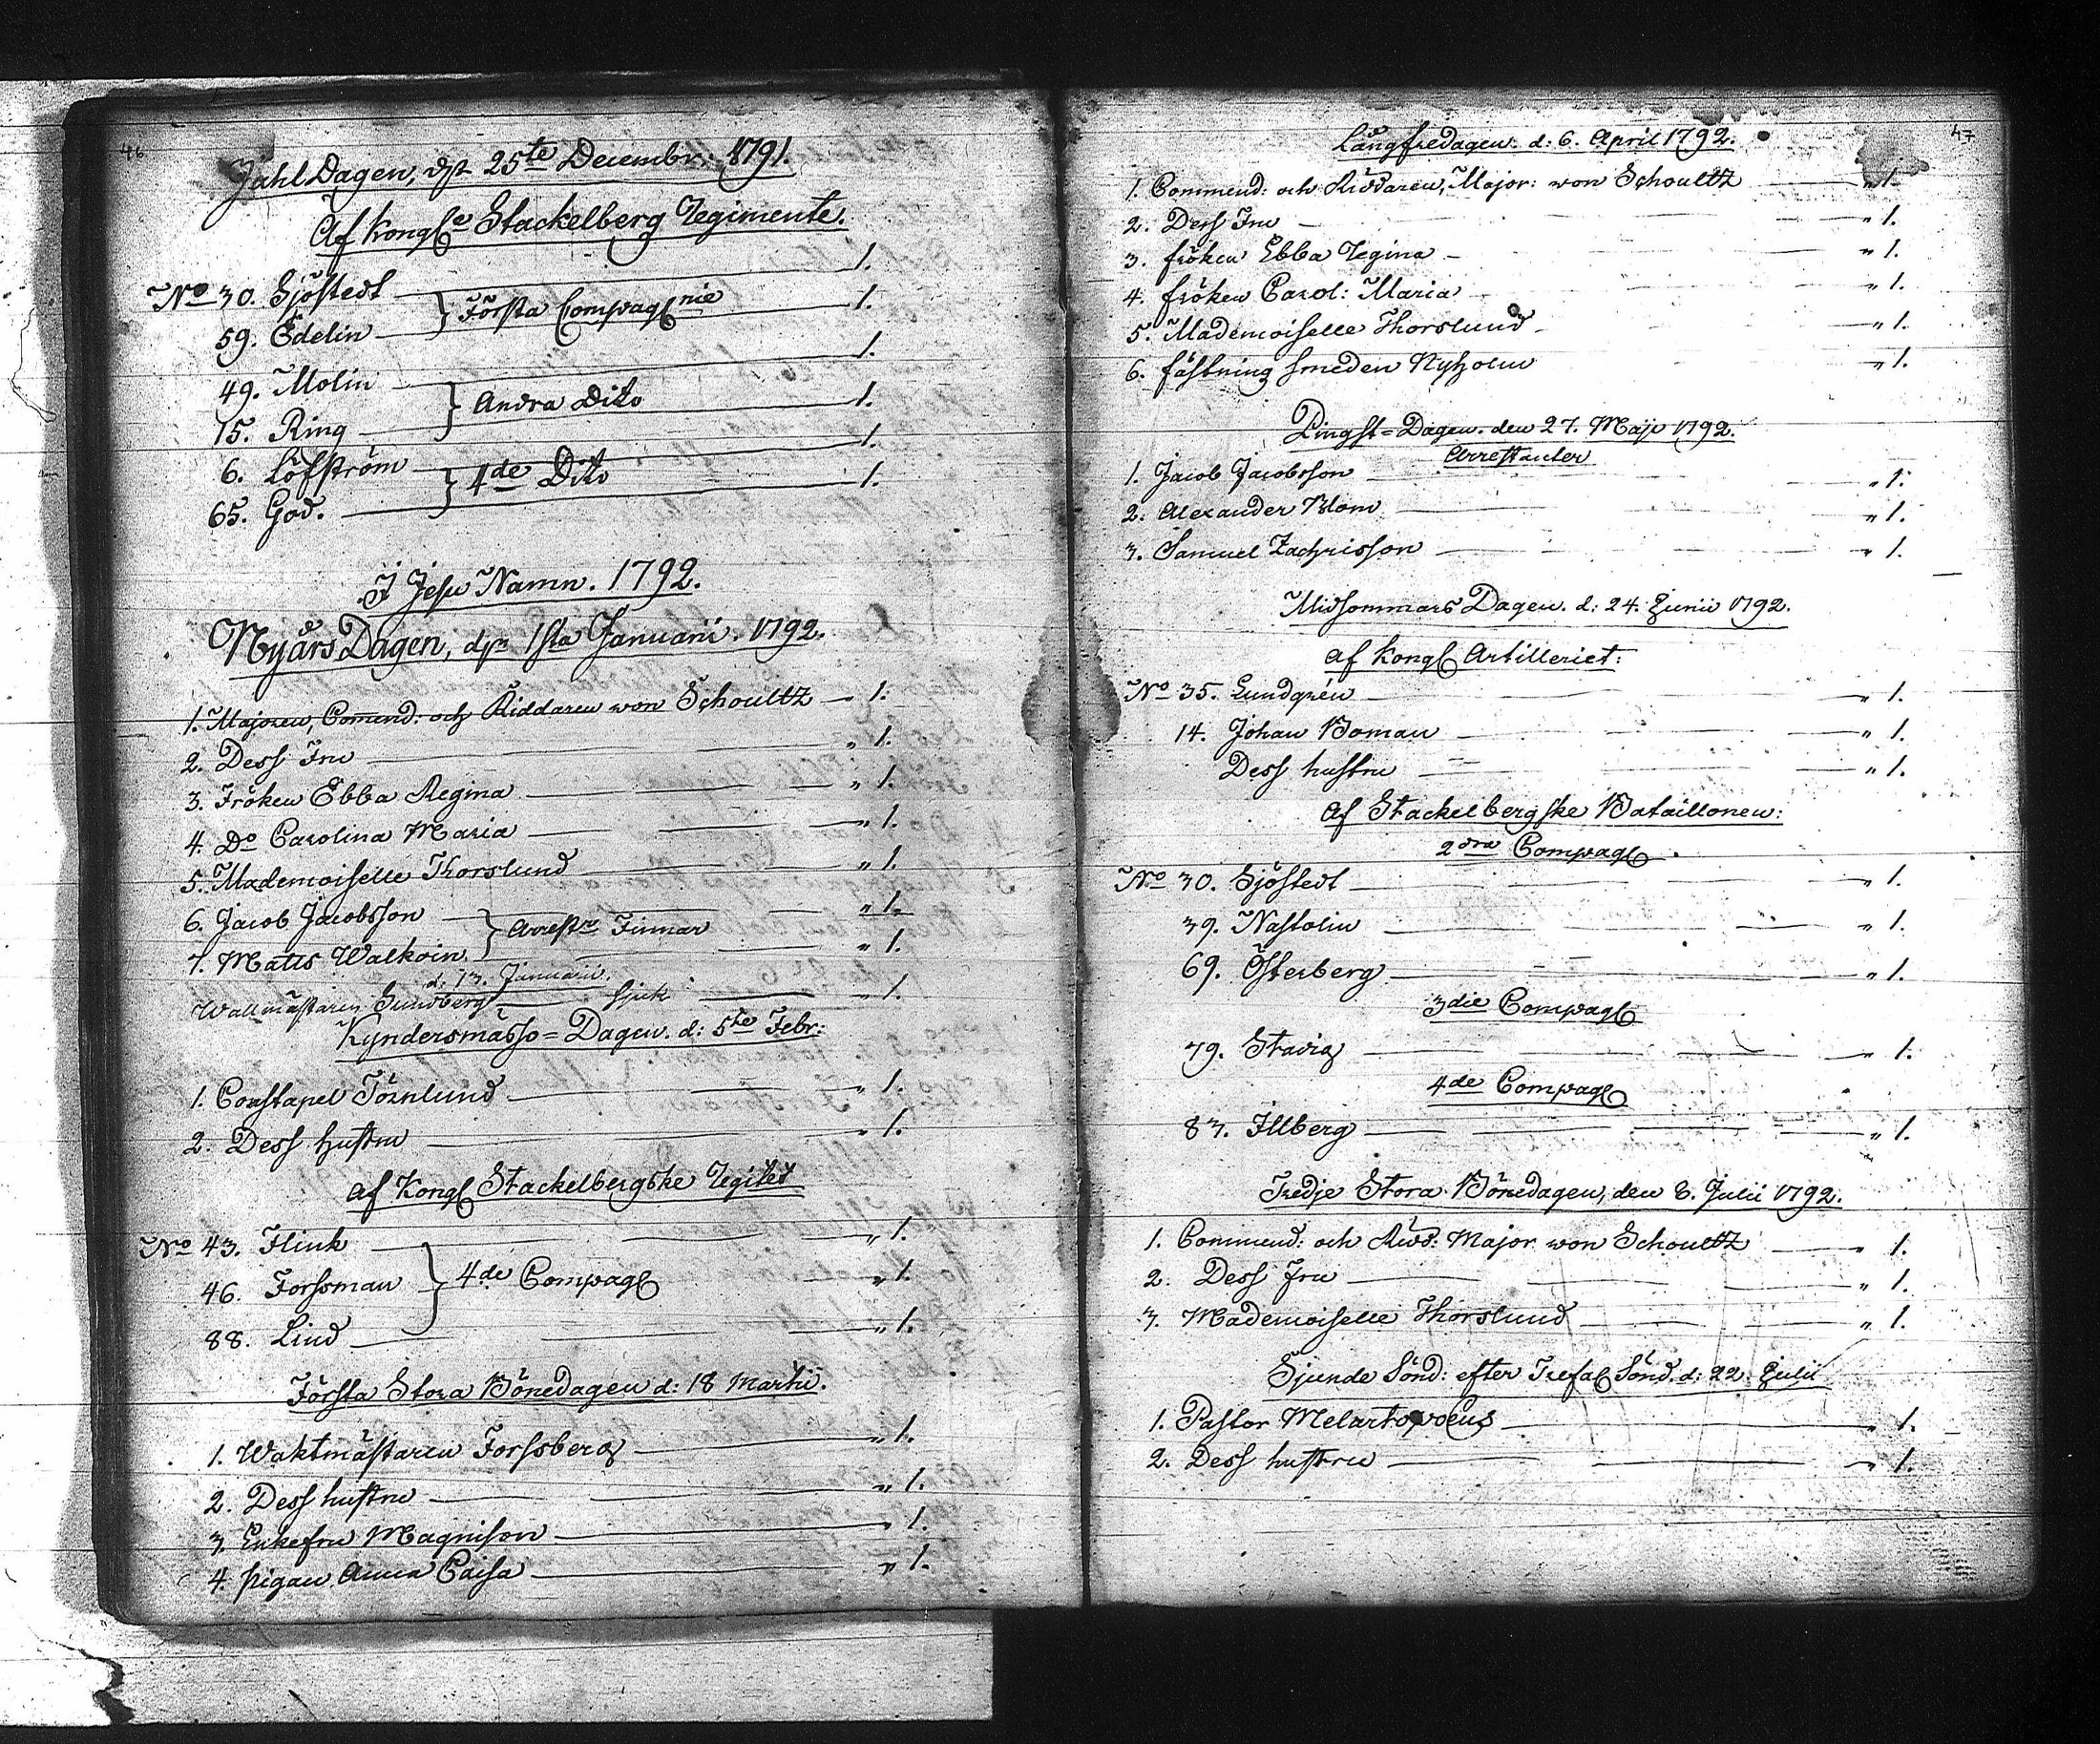 46
Jahl Dagen, d. 25te Decembr: 1791.
Af Kongl. Stackelberg Regimente.
No 30. Sjöstedt 1.
59. Edelin } Första Compagnie 1.
49. Molin 1.
15. Ring } Andra Dito 1.
6. Löfström 1.
65. God. } 4de Dito 1.
I Jesu Namn. 1792.
Nyårs Dagen, d. 1sta Januarii. 1792.
1. Majoren, Comend: och Riddaren von Schoultz 1.
2. Dess Fru „ 1.
3. Fröken Ebba Regina „ 1.
4. Do Carolina Maria „ 1.
5. Mademoiselle Thorslund „ 1.
6. Jacob Jacobsson „ 1.
7. Matts Walkoin } Arrestr Finnar „ 1.
d. 13. Januarii.
Wallmästaren Sundberg sjuk „ 1.
Kyndersmässo=Dagen. d: 5te Febr:
1. Constapel Törnlund „ 1.
2. Dess hustru „ 1.
af Kongl Stackelbergske Regitet
No 43. Flink „ 1.
46. Forssman } 4de Compagl „ 1.
88. Lind „ 1.
Första Stora Bönedagen d: 18 Martii.
1. Waktmästaren Forssberg „ 1.
2. Dess hustru „ 1.
3. Enkefru Magnison „ 1.
4. pigan Anna Caisa „ 1.
47
Långfredagen. d: 6. April 1792.
1. Commend: och Riddaren, Major: von Schoultz „ 1.
2. Dess Fru „ 1.
3. fröken Ebba Regina „ 1.
4. fröken Carol: Maria „ 1.
5. Mademoiselle Thorslund „ 1.
6. fästning smeden Nyholm „ 1.
Pingst=Dagen. den 27. Maji 1792.
Arrestanter
1. Jacob Jacobsson „ 1.
2. Alexander Blom „ 1.
3. Samuel Zachrisson „ 1.
Midsommars Dagen. d: 24. Junii 1792.
af Kongl Artilleriet:
No 35. Lundgrén „ 1.
14. Johan Boman „ 1.
Dess hustru „ 1.
af Stackelbergske Bataillonen:
2dra Compagl
No 30. Sjöstedt „ 1.
39. Nastolin „ 1.
69. Österberg „ 1.
3die Compagl
79. Stavig „ 1.
4de Compagl
83. Illberg „ 1.
Tredje Stora Bönedagen, den 8. Julii 1792.
1. Commend: och Ridd: Major von Schoultz „ 1.
2. Dess fru „ 1.
3. Mademoiselle Thorslund „ 1.
Sjunde Sönd: efter Trefal Sönd. d: 22. Julii
1. Pastor Melartopæus „ 1.
2. Dess hustru „ 1.